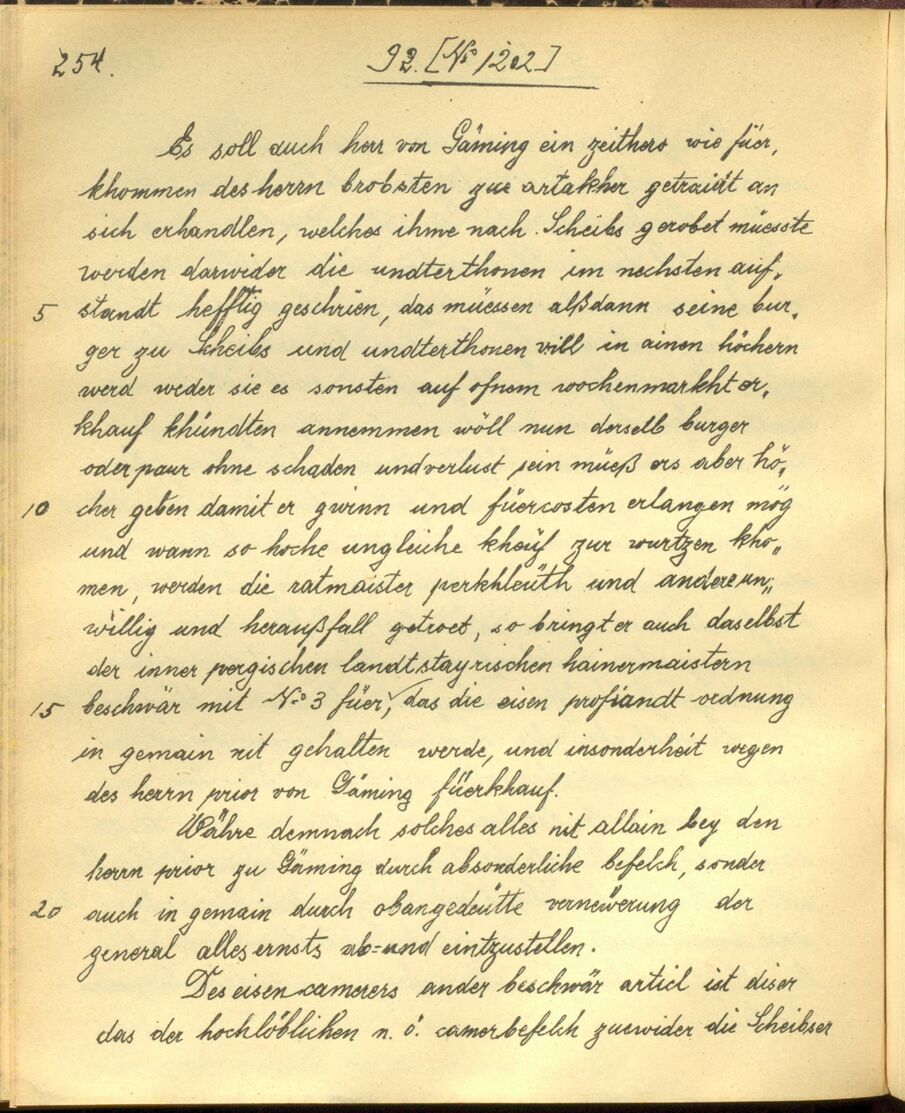 254.
92. [No 1202]
Es soll auch herr von Gäming ein zeithero wie füer,
khommen des herrn brobsten zue artakher getraidt an
sich erhandlen, welches ihme nach Scheibs gerobet müesste
werden darwider die undterthonen im nechsten auf,
5 standt hefftig geschrien, das müessen alßdann seine bur,
ger zu Scheibs und undterthonen vill in ainen höchern
werd weder sie es sonsten auf ofnem wochenmarkht er,
khauf khündten annemmen wöll nun derselb burger
oder paur ohne schaden und verlust sein müeß ers aber hö,
10 cher geben damit er gwinn und füercosten erlangen mög
und wann so hoche ungleiche kheüf zur wurtzen kho„
men, werden die ratmaister perkhleüth und andere un„
willig und heraußfall getroet, so bringt er auch daselbst
der inner pergischen landtstayrischen hainermaistern
15 beschwär mit No 3 füer, das die eisen profiandt ordnung
in gemain nit gehalten werde, und insonderheit wegen
des herrn prior von Gäming füerkhauf.
Währe demnach solches alles nit allain bey den
herrn prior zu Gäming durch absonderliche befelch, sonder
20 auch in gemain durch obangedeütte vernewerung der
general alles ernsts ab= und eintzustellen.
Des eisen camerers ander beschwär articl ist diser
das der hochlöblichen n. ö. camerbefelch zuewider die Scheibser